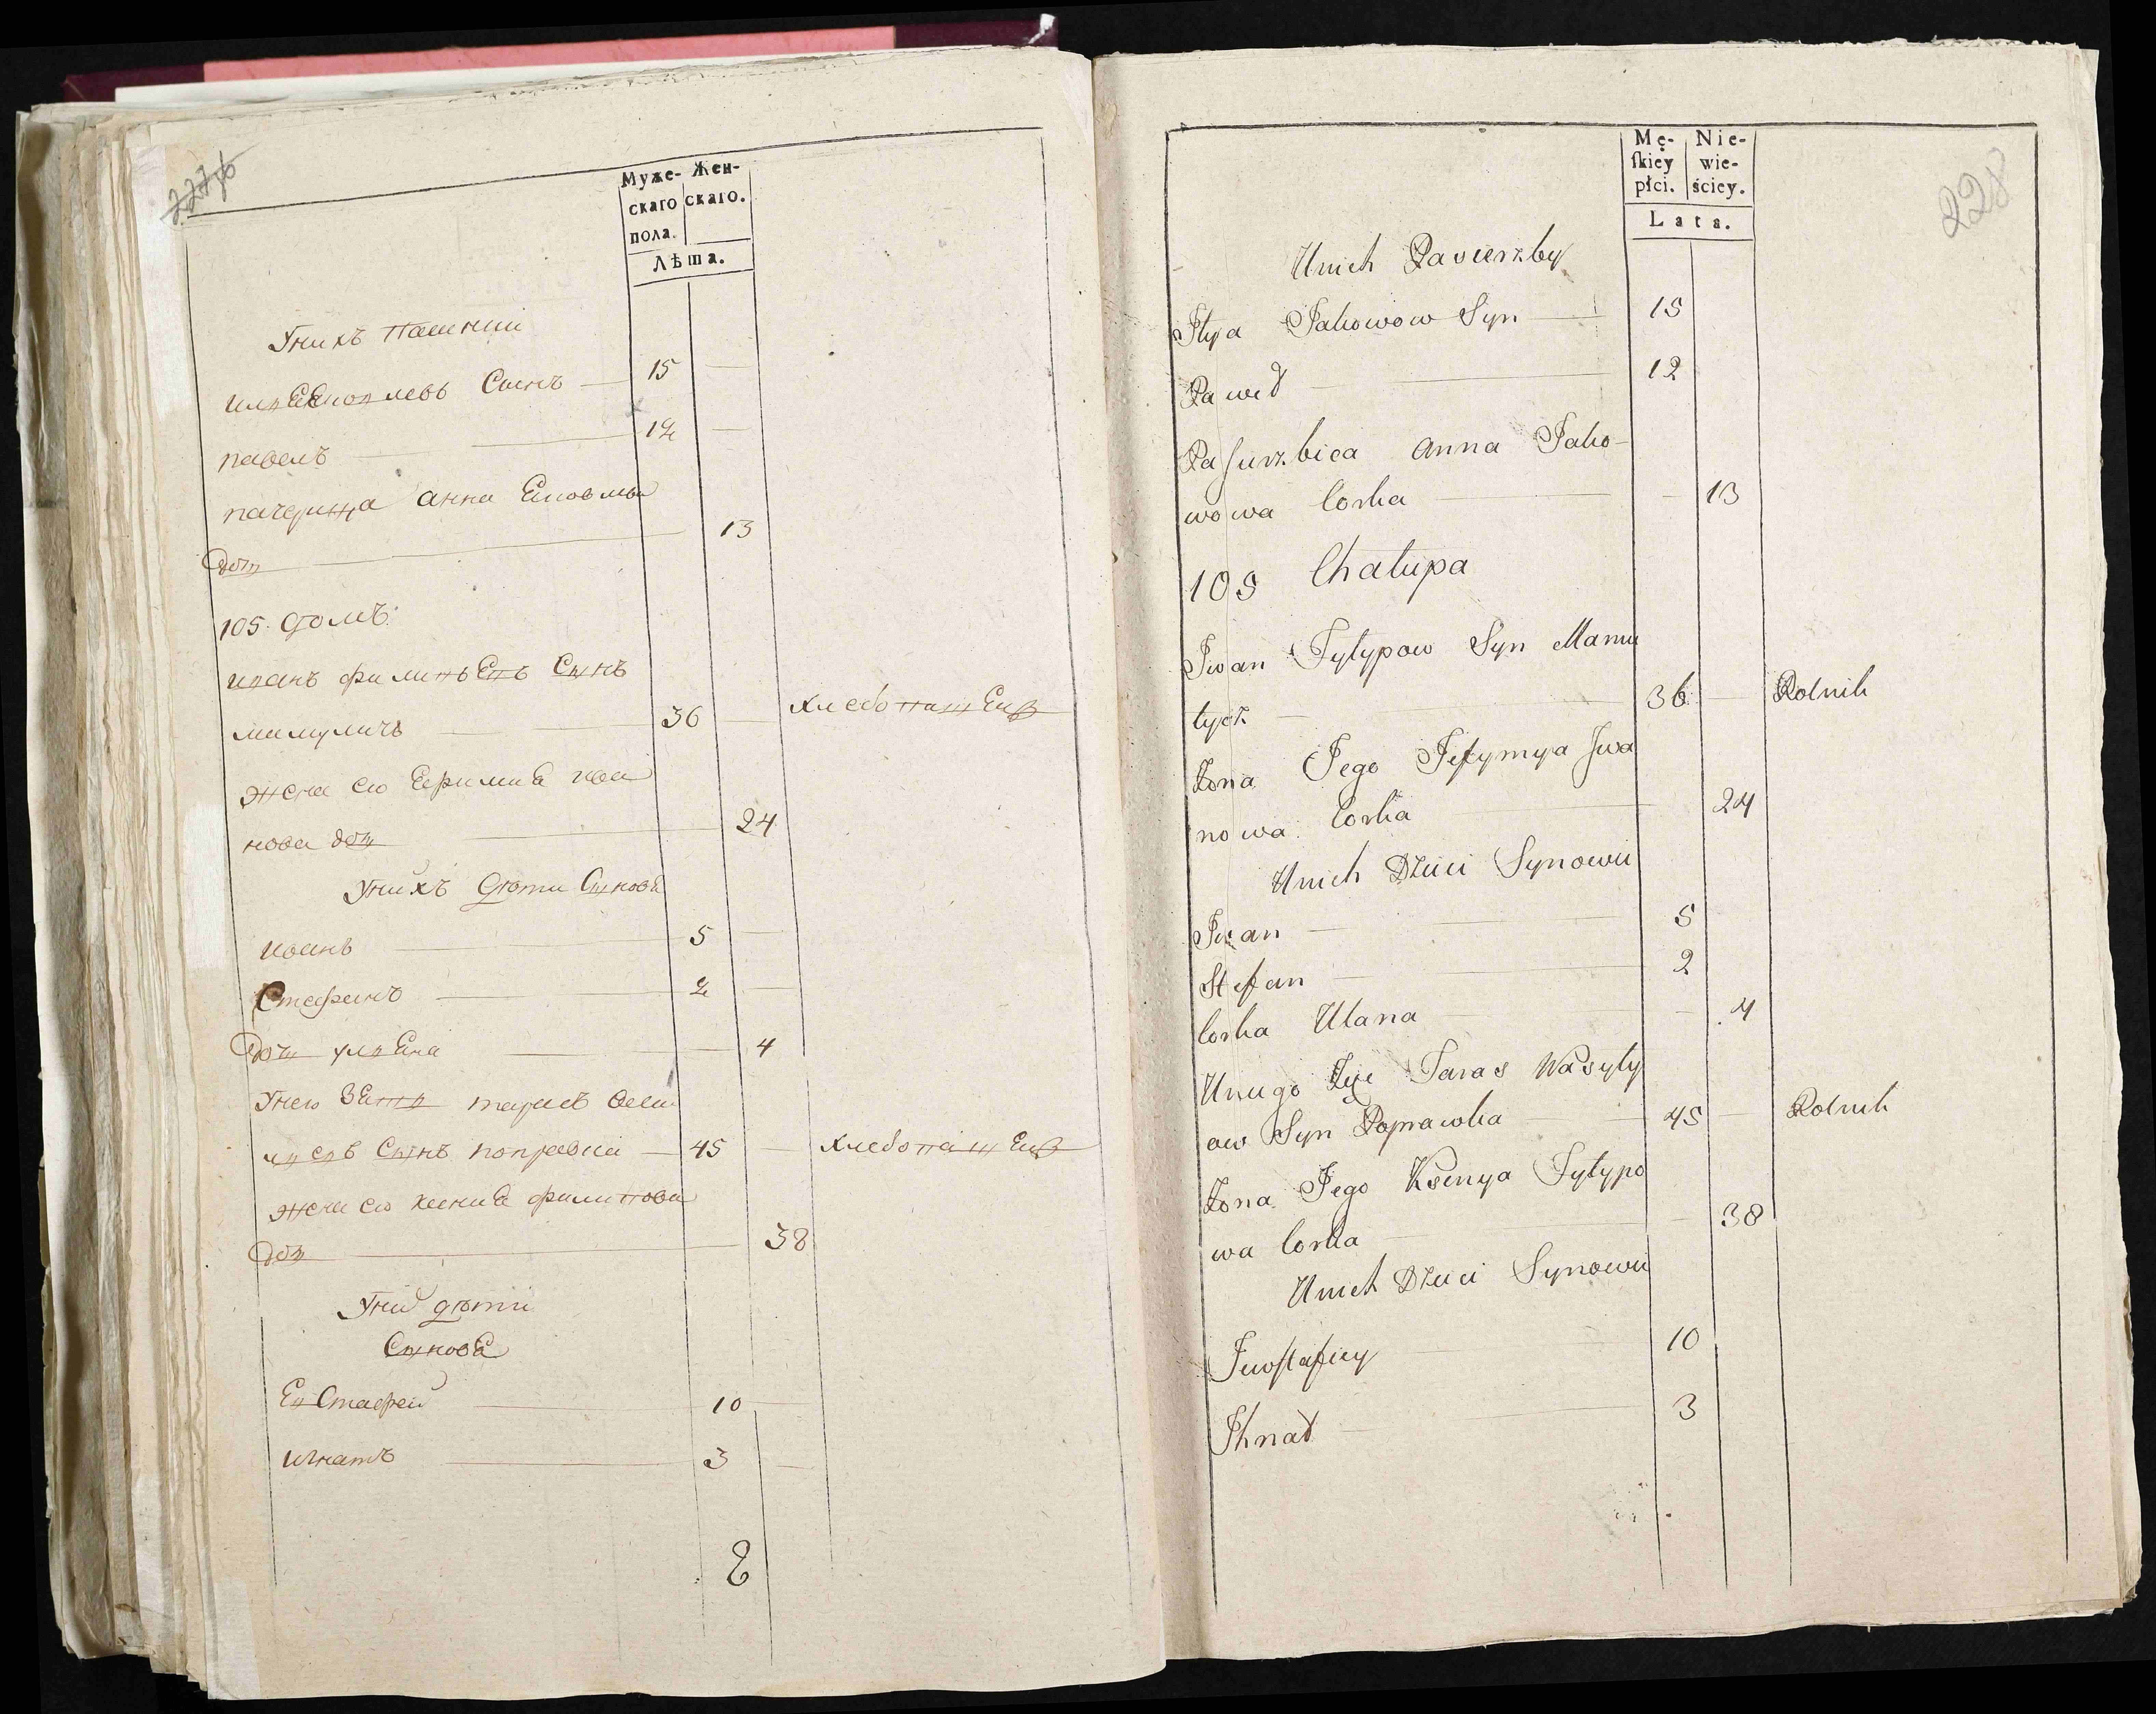 227б
Муже- Жен-
скаго скаго.
пола.
Лѣта.
Унихъ пасинки
илия Якополевъ Синъ 15
павелъ 12
пачерица анна Яковлева
доч 13
105. домъ
иванъ филипьевъ Сынъ
мамуличъ 36 хлебопашецъ
жена его Ефимия ива
нова доч 24
Унихъ дѣти Сынове
иоанъ 5
Стефанъ 2
Доч улияна 4
Унего Зять тарасъ васи
лиевъ Сынъ поправка 45 хлебопашецъ
жена его ксения филипова
доч 38
Уних дѣти
Сынове
Евстафей 10
игнатъ 3
8
228
Mę- Nie-
ſkiey wie-
płci. ściey.
Lata.
Unich Pasierzby
Ilya Jakowow Syn 15
Paweł 12
Paſierzbica Anna Jako-
wowa Corka 13
105 Chałupa
Iwan Fylypow Syn Mamu
lycz 36 Rolnik
Żona Jego Jefymya Iwa
nowa Corka 24
Unich Dzieci Synowie
Iwan 5
Stefan 2
Corka Ulana 4
Uniego Zięć Taras Wasyly
ow Syn Poprawka 45 Rolnik
Żona Jego Ksenya Fylypo
wa Corka 38
Unich Dzieci Synowie
Jewſtafiey 10
Ihnat 3